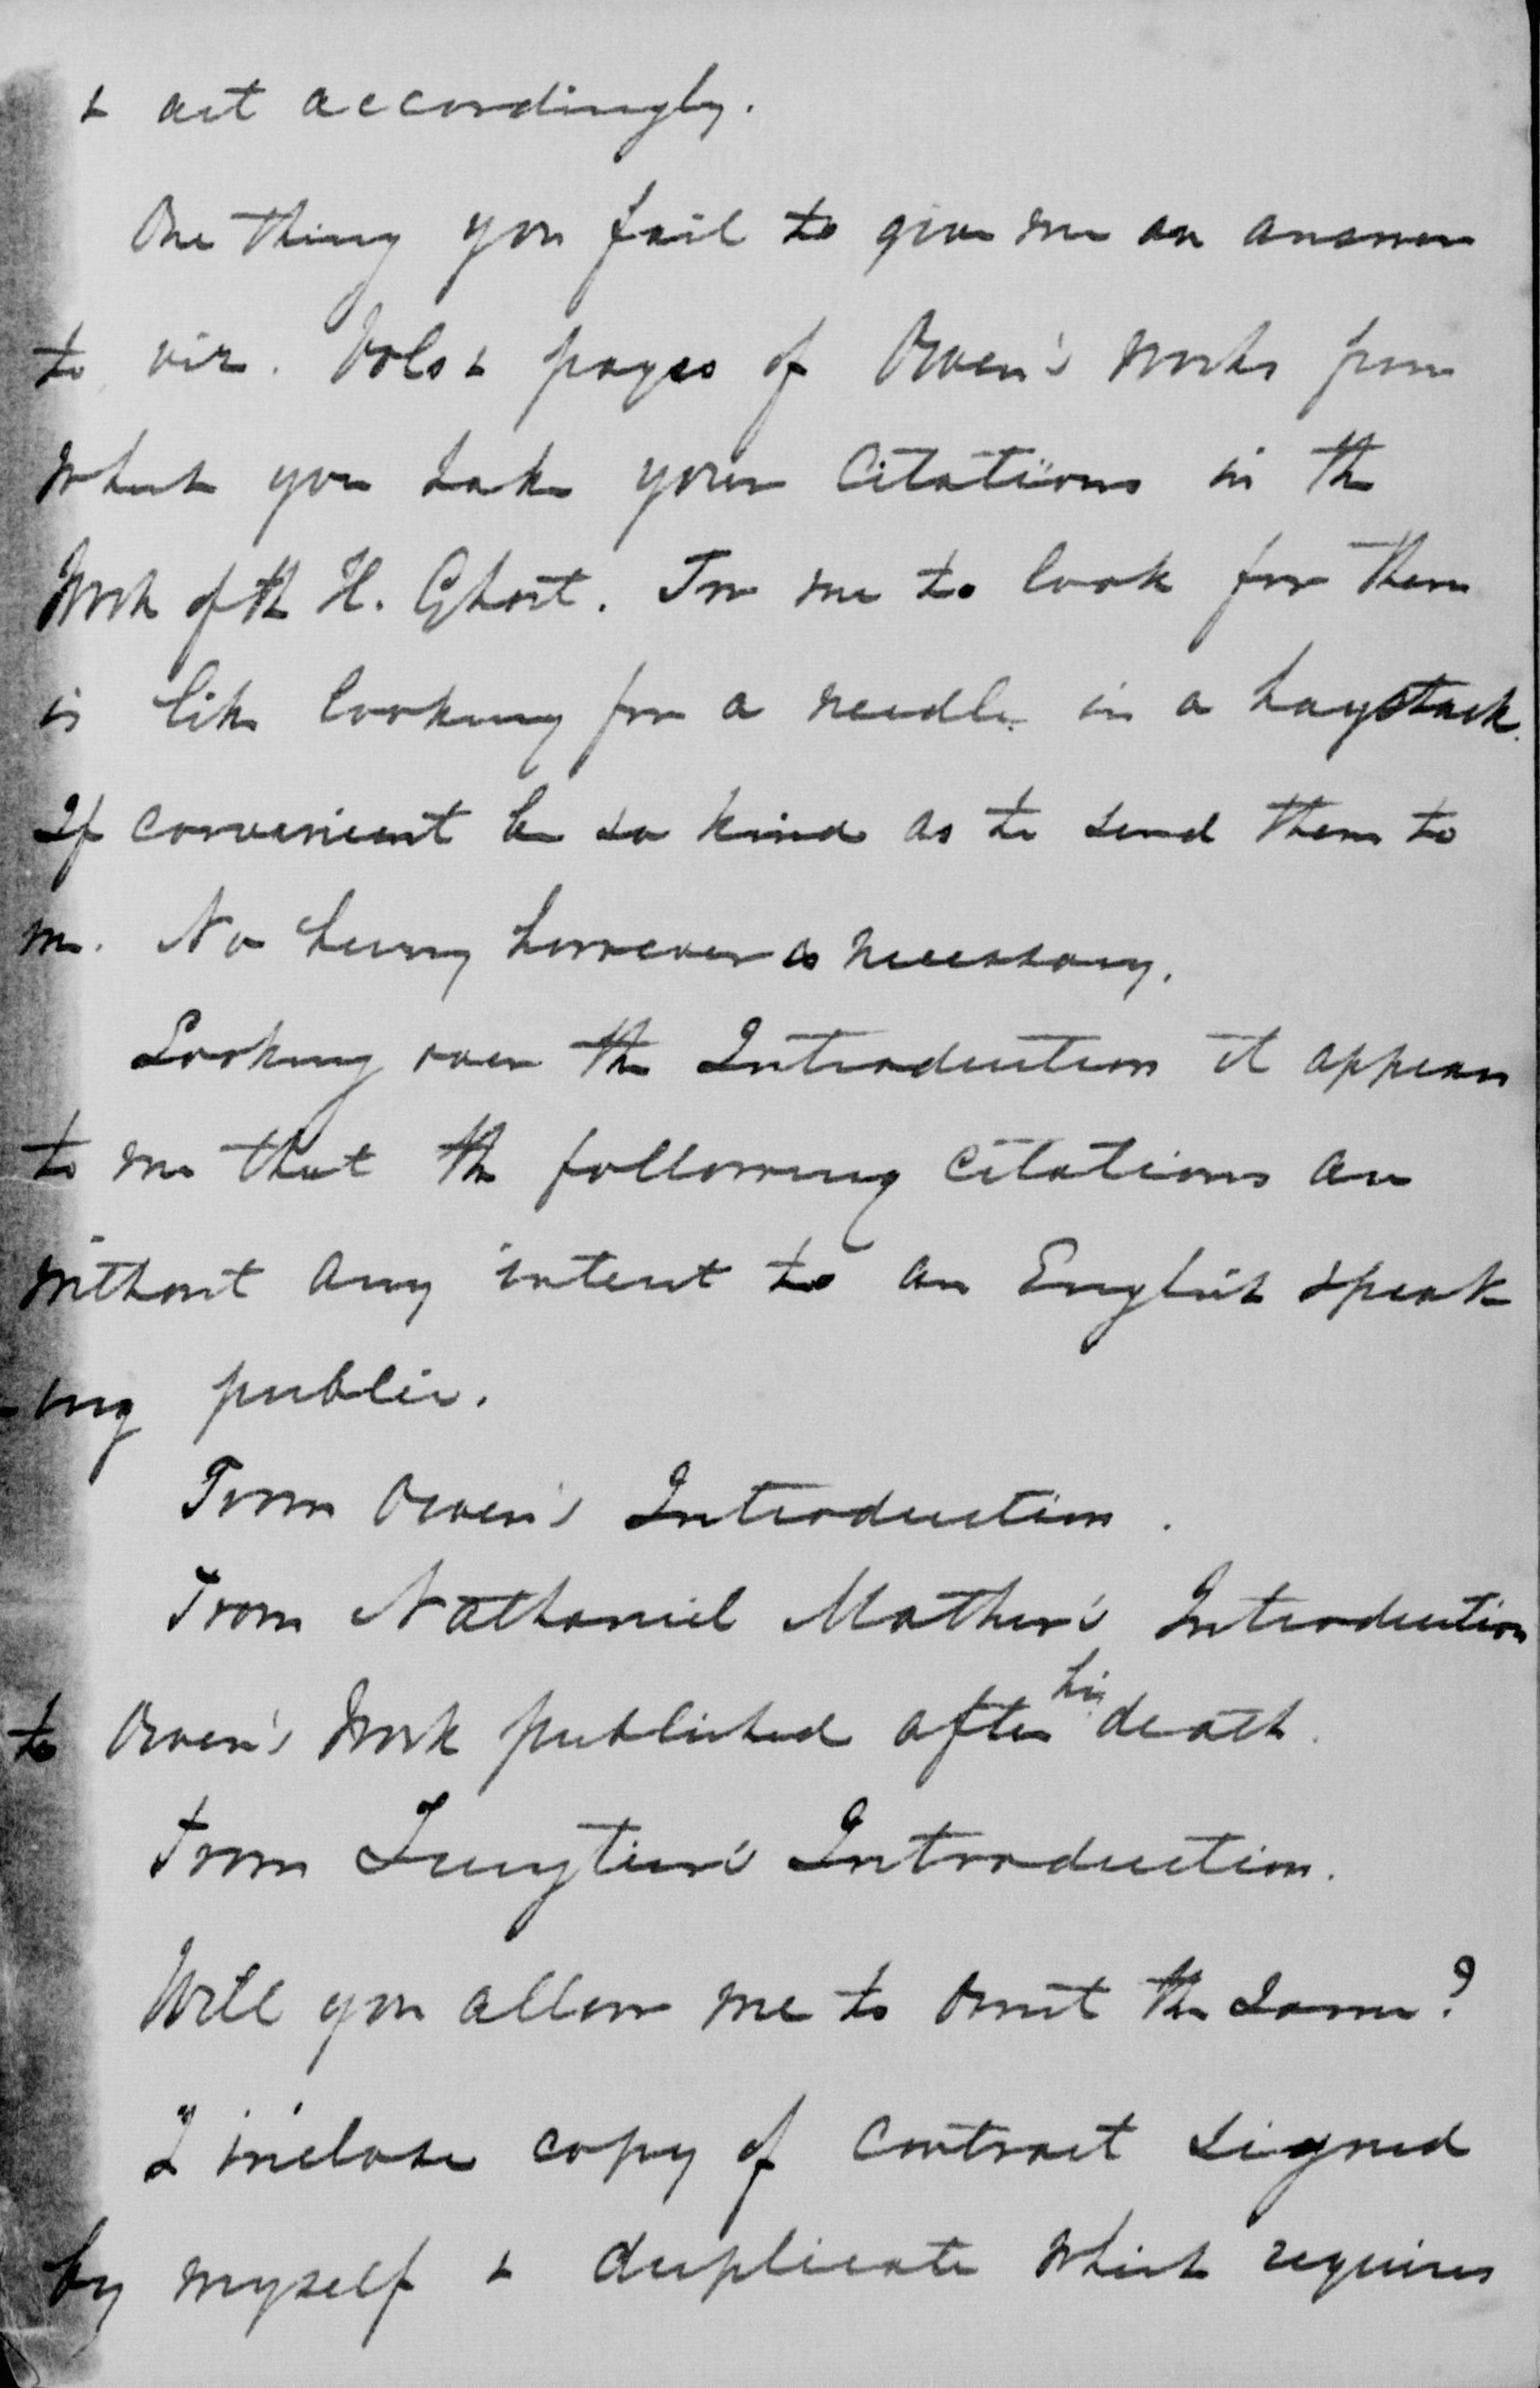 & act accordingly.
One thing you fail to give me an answer
to viz. Vols & pages of Owen's works from
which you take your Citations in the
Work of th H. Ghost. For me to look for them
is like looking for a needle in a haystack.
If convenient be so kind as to send them to
me. No hurry however is necessary.
Looking over the Introduction it appears
to me that the following citations are
without any interest to an English speak
-ing public.
From Owen's Introduction.
From Nathaniel Mather's Introduction
to Owen's Work published after his death.
From Introduction.
Will you allow me to omit the same?
I inclose copy of contract signed
by myself & duplicate which requires